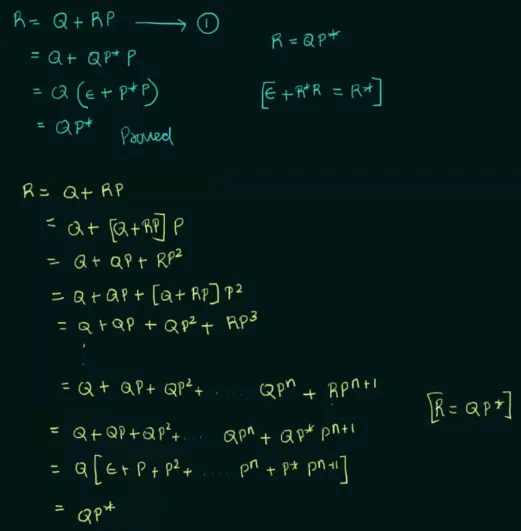 R = Q + RP ⟶ ①
R = QP*
= Q + QP* P
= Q (ϵ + P*P)
[ϵ + R*R = R*]
= QP* Proved
R = Q + RP
= Q + [Q+RP] P
= Q + QP + RP²
= Q + QP + [Q + RP] P²
= Q + QP + QP² + RP³
:
= Q + QP + QP² + .... QPⁿ + RPⁿ⁺¹
[R = QP*]
= Q + QP + QP² + .... QPⁿ + QP* Pⁿ⁺¹
= Q [ϵ + P + P² + .... Pⁿ + P* Pⁿ⁺¹]
= QP*